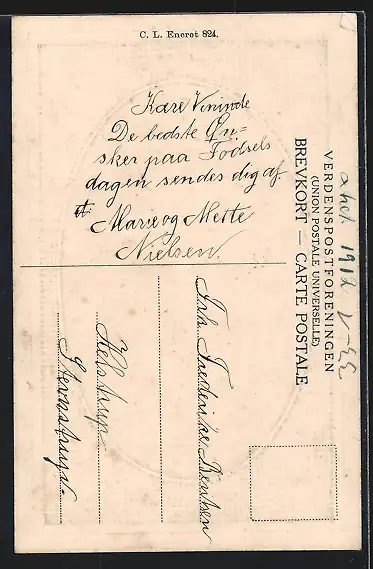 C. L. Eneret 824.
Kære Veninde
De bedste Øn=
sker paa Fødsels
dagen sendes dig af
Marie og Mette
Nielsen.
VERDENSPOSTFORENINGEN
(UNION POSTALE UNIVERSELLE)
BREVKORT — CARTE POSTALE
1912
Frk. Frederikke Bentsen
Stenstrup